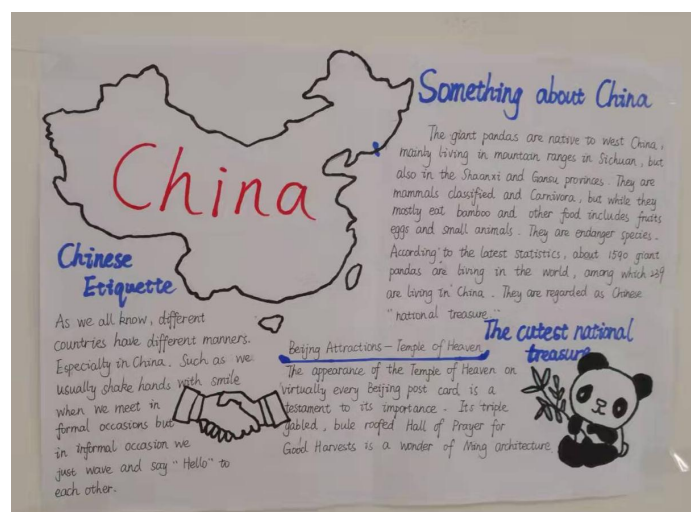 China
Something about China
The giant pandas are native to west China,
mainly living in mountain ranges in Sichuan, but
also in the Shaanxi and Gansu provinces. They are
mammals classified and Carnivora, but while they
mostly eat bamboo and other food includes fruits
eggs and small animals. They are endanger species.
According to the latest statistics, about 1590 giant
pandas are living in the world, among which 239
are living in China. They are regarded as Chinese
"national treasure."
Chinese
Etiquette
As we all know, different
countries have different manners.
Especially in China. Such as we
usually shake hands with smile
when we meet in
formal occasions but
in informal occasion we
just wave and say "Hello" to
each other.
Beijng Attractions - Temple of Heaven
The appearance of the Temple of Heaven on
virtually every Beijing post card is a
testament to its importance. Its triple
gabled, bule roofed Hall of Prayer for
Good Harvests is a wonder of Ming architecture
The cutest national
treasure